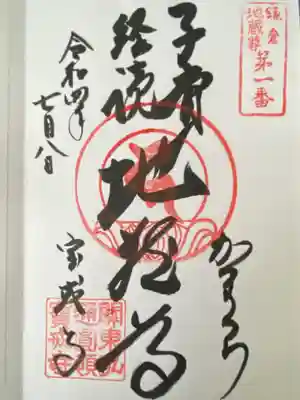 鎌倉
地蔵尊
第一番
かまくら
子育
経読
地蔵尊
令和四年
七月八日
宝戒寺
關東弘
通圓頓
寶戒寺